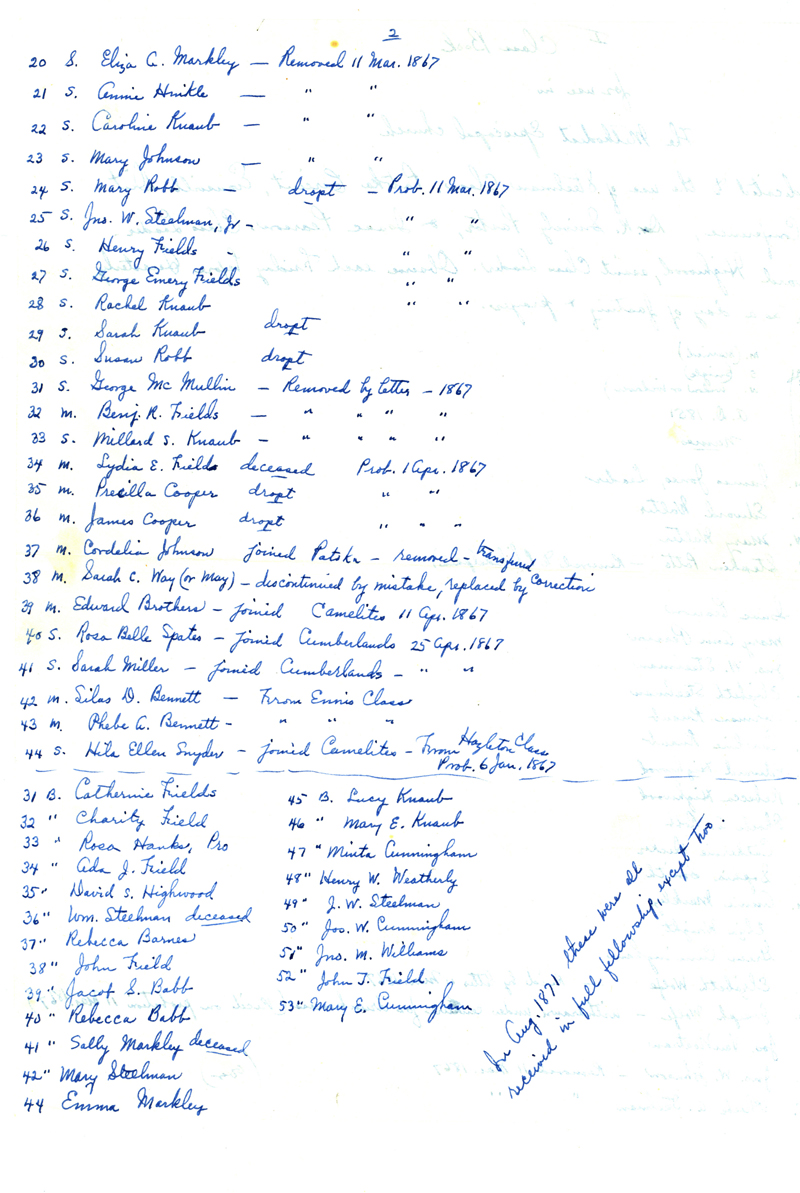 2
20 S. Eliza C. Markley — Removed 11 Mar. 1867
21 S. Annie Hinkle — " "
22 S. Caroline Knaub — " "
23 S. Mary Johnson — " "
24 S. Mary Robb — dropt — Prob. 11 Mar. 1867
25 S. Jno. W. Steelman, Jr - " "
26 S. Henry Fields - " "
27 S. George Emery Fields " "
28 S. Rachel Knaub " "
29 S. Sarah Knaub dropt
30 S. Susan Robb dropt
31 S. George Mc Mullin — Removed by letter — 1867
32 m. Benj. R. Fields — " " " "
33 S. Millard S. Knaub — " " " "
34 m. Lydia E. Fields deceased Prob. 1 Apr. 1867
35 m. Precilla Cooper dropt " "
36 m. James Cooper dropt " " "
37 m. Cordelia Johnson joined Patoka — removed — transfered
38 m. Sarah C. Way (or May) — discontinued by mistake, replaced by correction
39 m. Edward Brothers — joined Camelites 11 Apr. 1867
40 S. Rosa Belle Spates — joined Cumberlands 25 Apr. 1867
41 S. Sarah Miller — joined Cumberlands — " "
42 m. Silas D. Bennett — From Ennis Class
43 m. Phebe A. Bennett - " " "
44 S. Hila Ellen Snyder — joined Camelites — From Hazleton Class
Prob. 6 Jan. 1867
31 B. Catherine Fields
32 " Charity Field
33 " Rosa Hanks, Pro
34 " Ada J. Field
35 " David S. Highwood
36 " Wm. Steelman deceased
37 " Rebecca Barnes
38 " John Field
39 " Jacof S. Babb
40 " Rebecca Babb
41 " Sally Markley deceased
42 " Mary Steelman
44 Emma Markley
45 B. Lucy Knaub
46 " Mary E. Knaub
47 " Minta Cunningham
48 " Henry W. Weatherly
49 " J. W. Steelman
50 " Jos. W. Cunningham
51 " Jno. M. Williams
52 " John T. Field
53 " Mary E. Cunningham
In Aug. 1871 these were all
received in full fellowship, except two.